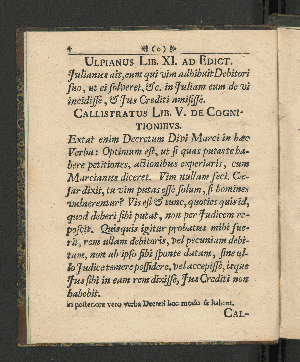 4 (0)
ULPIANUS LIB. XI. AD EDICT.
Julianus ait, eum qui vim adhibuit Debitori
suo, ut ei solveret, &c. in Juliam eum de vi
incidisse, & Jus Crediti amisisse.
CALLISTRATUS LIB. V. DE COGNI-
TIONIBUS.
Extat enim Decretum Divi Marci in hæc
Verba: Optimum est, ut si quas putas te ha-
bere petitiones, actionibus experiaris, cum
Marcianus diceret. Vim nullam feci. Cæ-
sar dixit, tu vim putas esse solum, si homines
vulnerentur? Vis est & tunc, quoties quis id,
quod deberi sibi putat, non per Judicem re-
poscit. Quisquis igitur probatus mihi fue-
rit, rem ullam debitoris, vel pecuniam debi-
tam, non ab ipso sibi sponte datam, sine ul-
lo Judice temere possidere, vel accepisse, isque
Jus sibi in eam rem dixisse, Jus Crediti non
habebit.
in posteriore vero verba Decreti hoc modo se habent.
CAL-